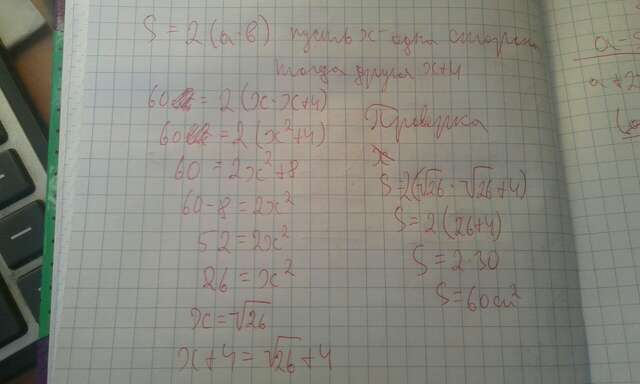 S = 2(a·b) пусть x - одна сторона
тогда другая x+4
60 = 2(x·x+4)
60 = 2(x²+4)
60 = 2x²+8
60-8=2x²
52=2x²
26=x²
x=√26
x+4=√26+4
Проверка
S=2(√26·√26+4)
S=2(26+4)
S=2·30
S=60см²